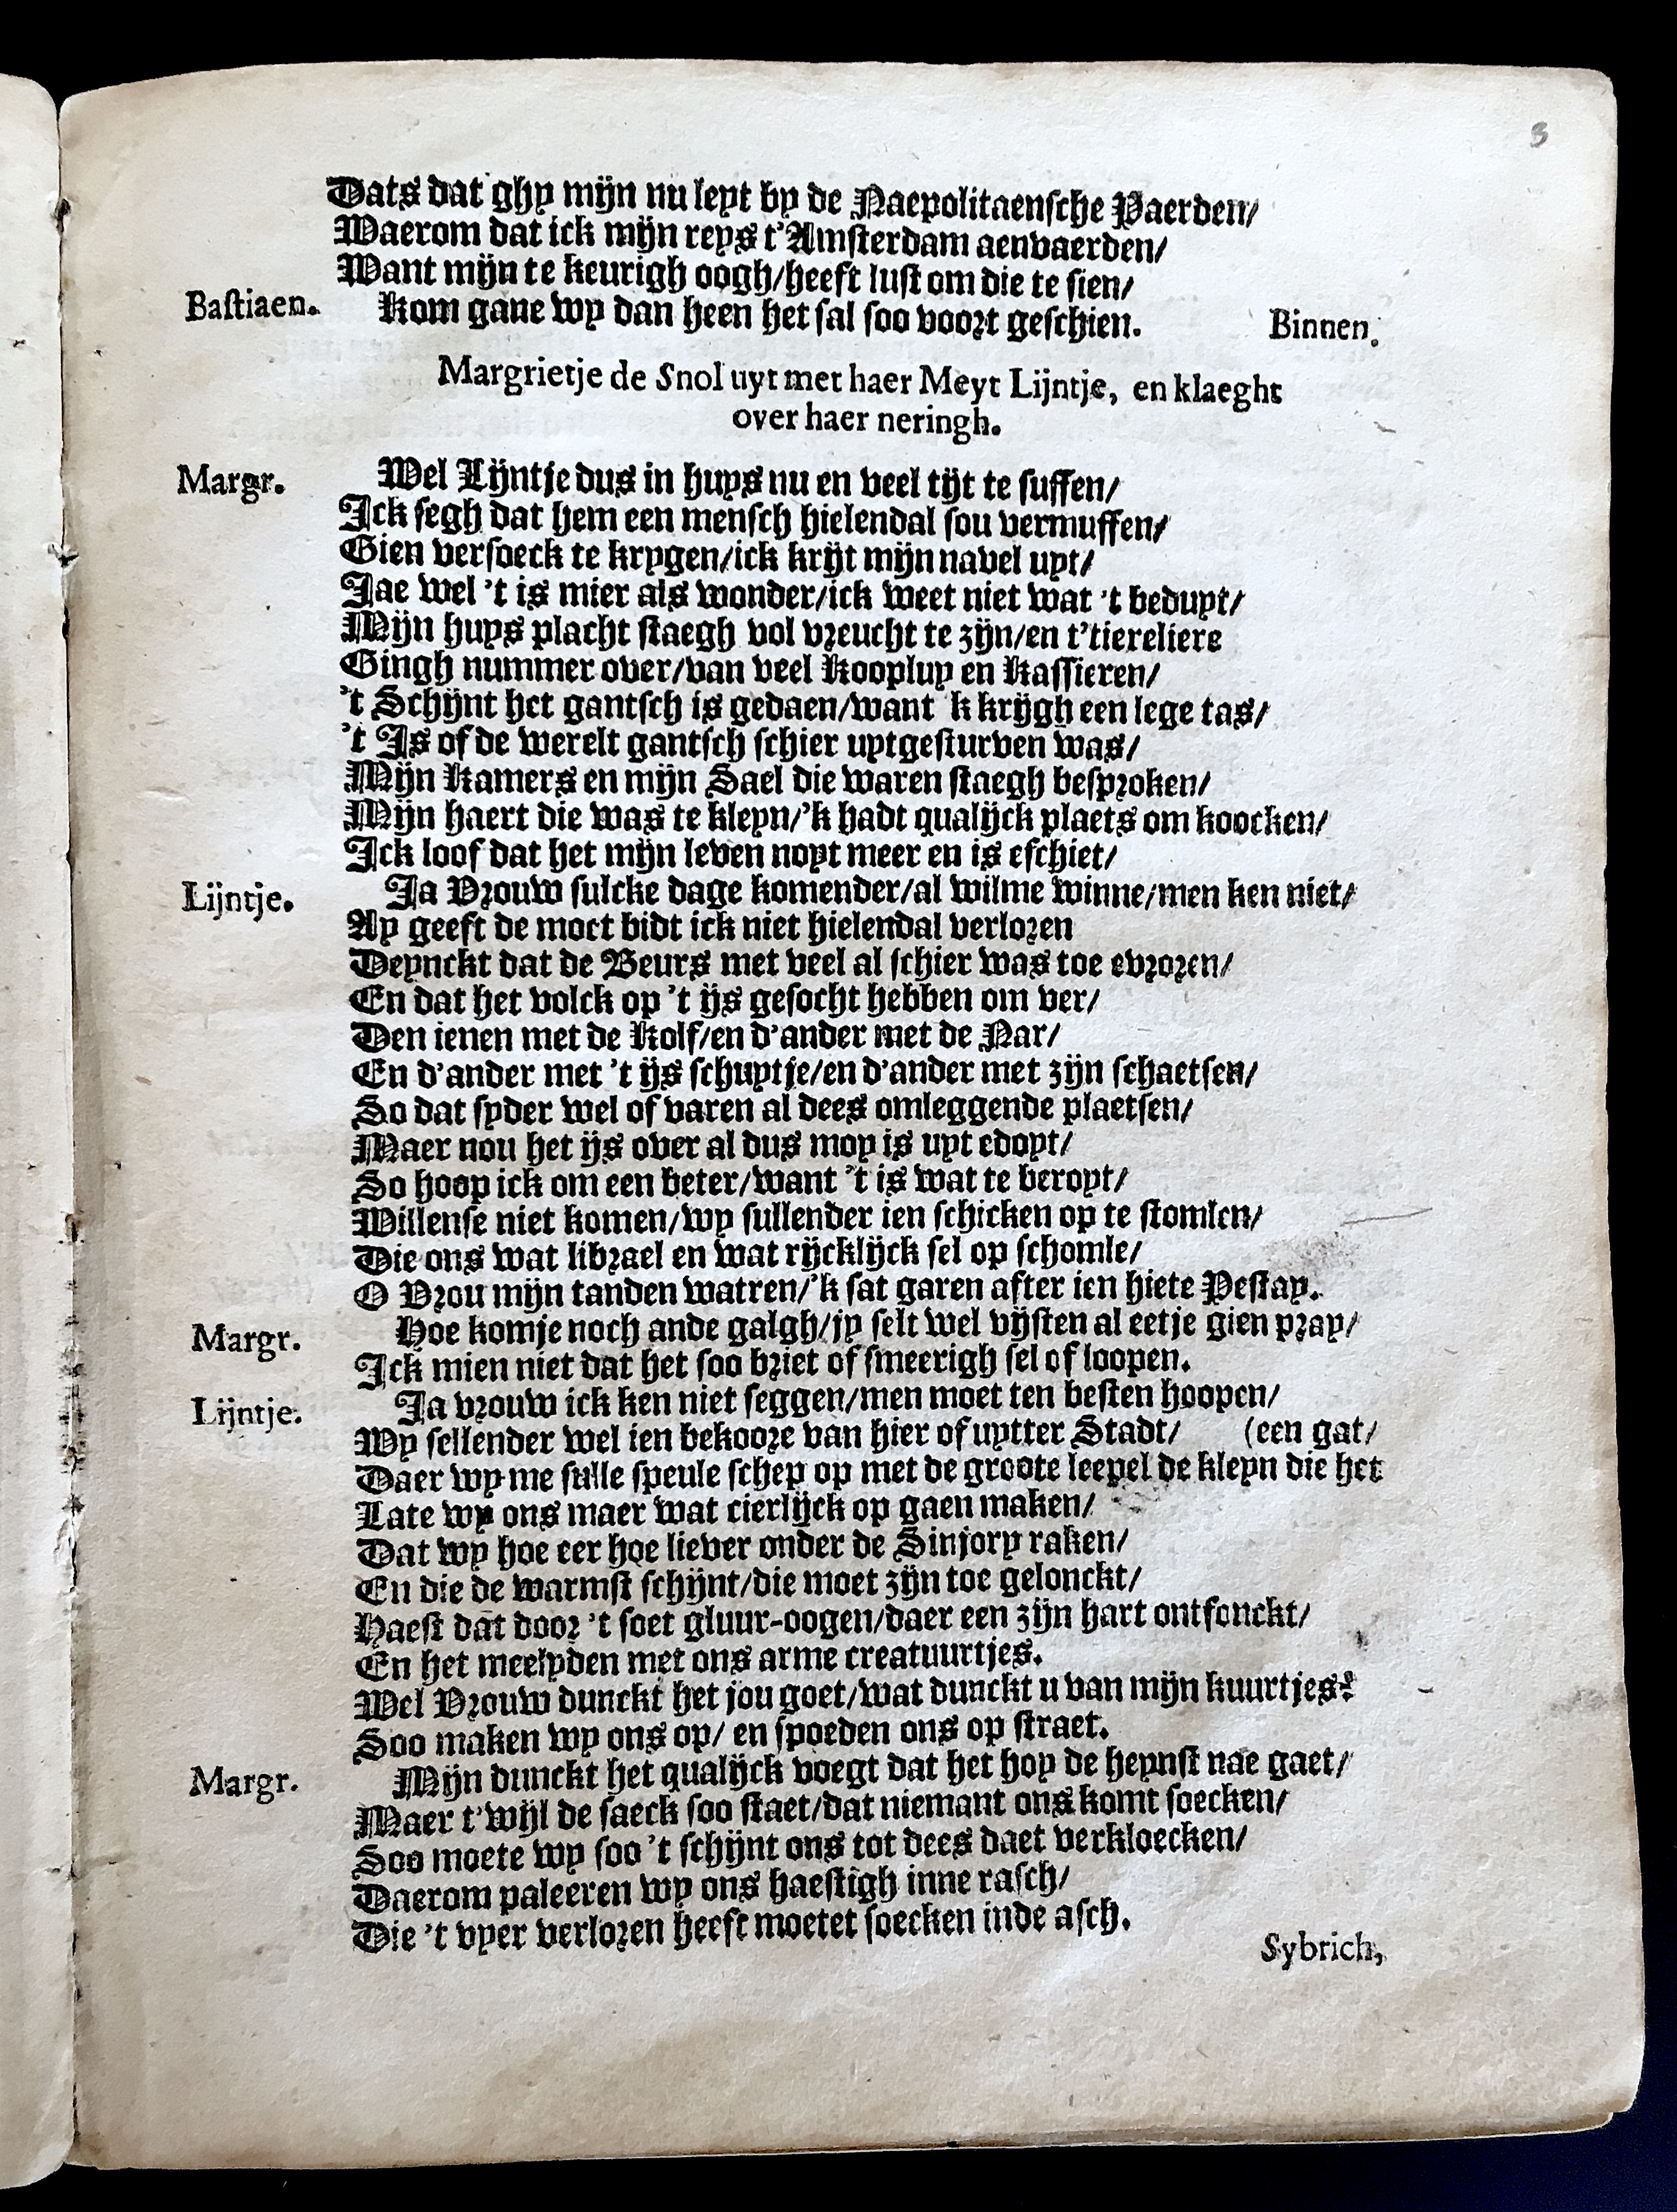 3
Dats dat ghy mijn nu leyt by de Naepolitaensche Paerden/
Waerom dat ick mijn reys t'Amsterdam aenvaerden/
Want mijn te keurigh oogh/heeft lust om die te sien/
Bastiaen. Kom gane wy dan heen het sal soo voort geschien. Binnen.
Margrietje de Snol uyt met haer Meyt Lijntje, en klaeght
over haer neringh.
Margr. Wel Lijntje dus in huys nu en veel tijt te suffen/
Ick segh dat hem een mensch hielendal sou vermuffen/
Gien versoeck te krygen/ick krijt mijn navel uyt/
Jae wel 't is mier als wonder/ick weet niet wat 't beduyt/
Mijn huys placht staegh vol vreucht te zijn/en t'tiereliere
Gingh nummer over/van veel Kooplup en Kassieren/
't Schijnt het gantsch is gedaen/want 'k krijgh een lege tas/
't Is of de werelt gantsch schier uytgesturven was/
Mijn Kamers en mijn Sael die waren staegh besproken/
Mijn haert die was te kleyn/'k hadt qualijck plaets om koocken/
Ick loof dat het mijn leven noyt meer en is eschiet/
Lijntje. Ja Vrouw sulcke dage komender/al wilme winne/men ken niet/
Ay geeft de moet bidt ick niet hielendal verloren
Deynckt dat de Beurs met veel al schier was toe evroren/
En dat het volck op 't ijs gesocht hebben om ver/
Den ienen met de Kolf/en d'ander met de Nar/
En d'ander met 't ijs schuytje/en d'ander met zijn schaetsen/
So dat syder wel of varen al dees omleggende plaetsen/
Maer nou het ijs over al dus moy is uyt edoyt/
So hoop ick om een beter/want 't is wat te beroyt/
Willense niet komen/wy sullender ien schicken op te stomlen/
Die ons wat librael en wat rijcklijck sel op schomle/
O Vrou mijn tanden watren/'k sat garen after ien hiete Pestay.
Margr. Hoe komje noch ande galgh/jy selt wel vijsten al eetje gien pray/
Ick mien niet dat het soo briet of smeerigh sel of loopen.
Lijntje. Ja vrouw ick ken niet seggen/men moet ten besten hoopen/
Wy sellender wel ien bekoore van hier of uytter Stadt/ (een gat/
Daer wy me sulle speule schep op met de groote leepel de kleyn die het
Late wy ons maer wat cierlijck op gaen maken/
Dat wy hoe eer hoe liever onder de Sinjory raken/
En die de warmst schijnt/die moet zijn toe gelonckt/
Haest dat door 't soet gluur-oogen/daer een zijn hart ontfonckt/
En het meelyden met ons arme creatuurtjes.
Wel Vrouw dunckt het jou goet/wat dunckt u van mijn kuurtjes?
Soo maken wy ons op/ en spoeden ons op straet.
Margr. Mijn dunckt het qualijck voegt dat het hoy de heynst nae gaet/
Maer t'wijl de saeck soo staet/dat niemant ons komt soecken/
Soo moete wy soo 't schijnt ons tot dees daet verkloecken/
Daerom paleeren wy ons haestigh inne rasch/
Die 't vyer verloren heeft moetet soecken inde asch.
Sybrich,